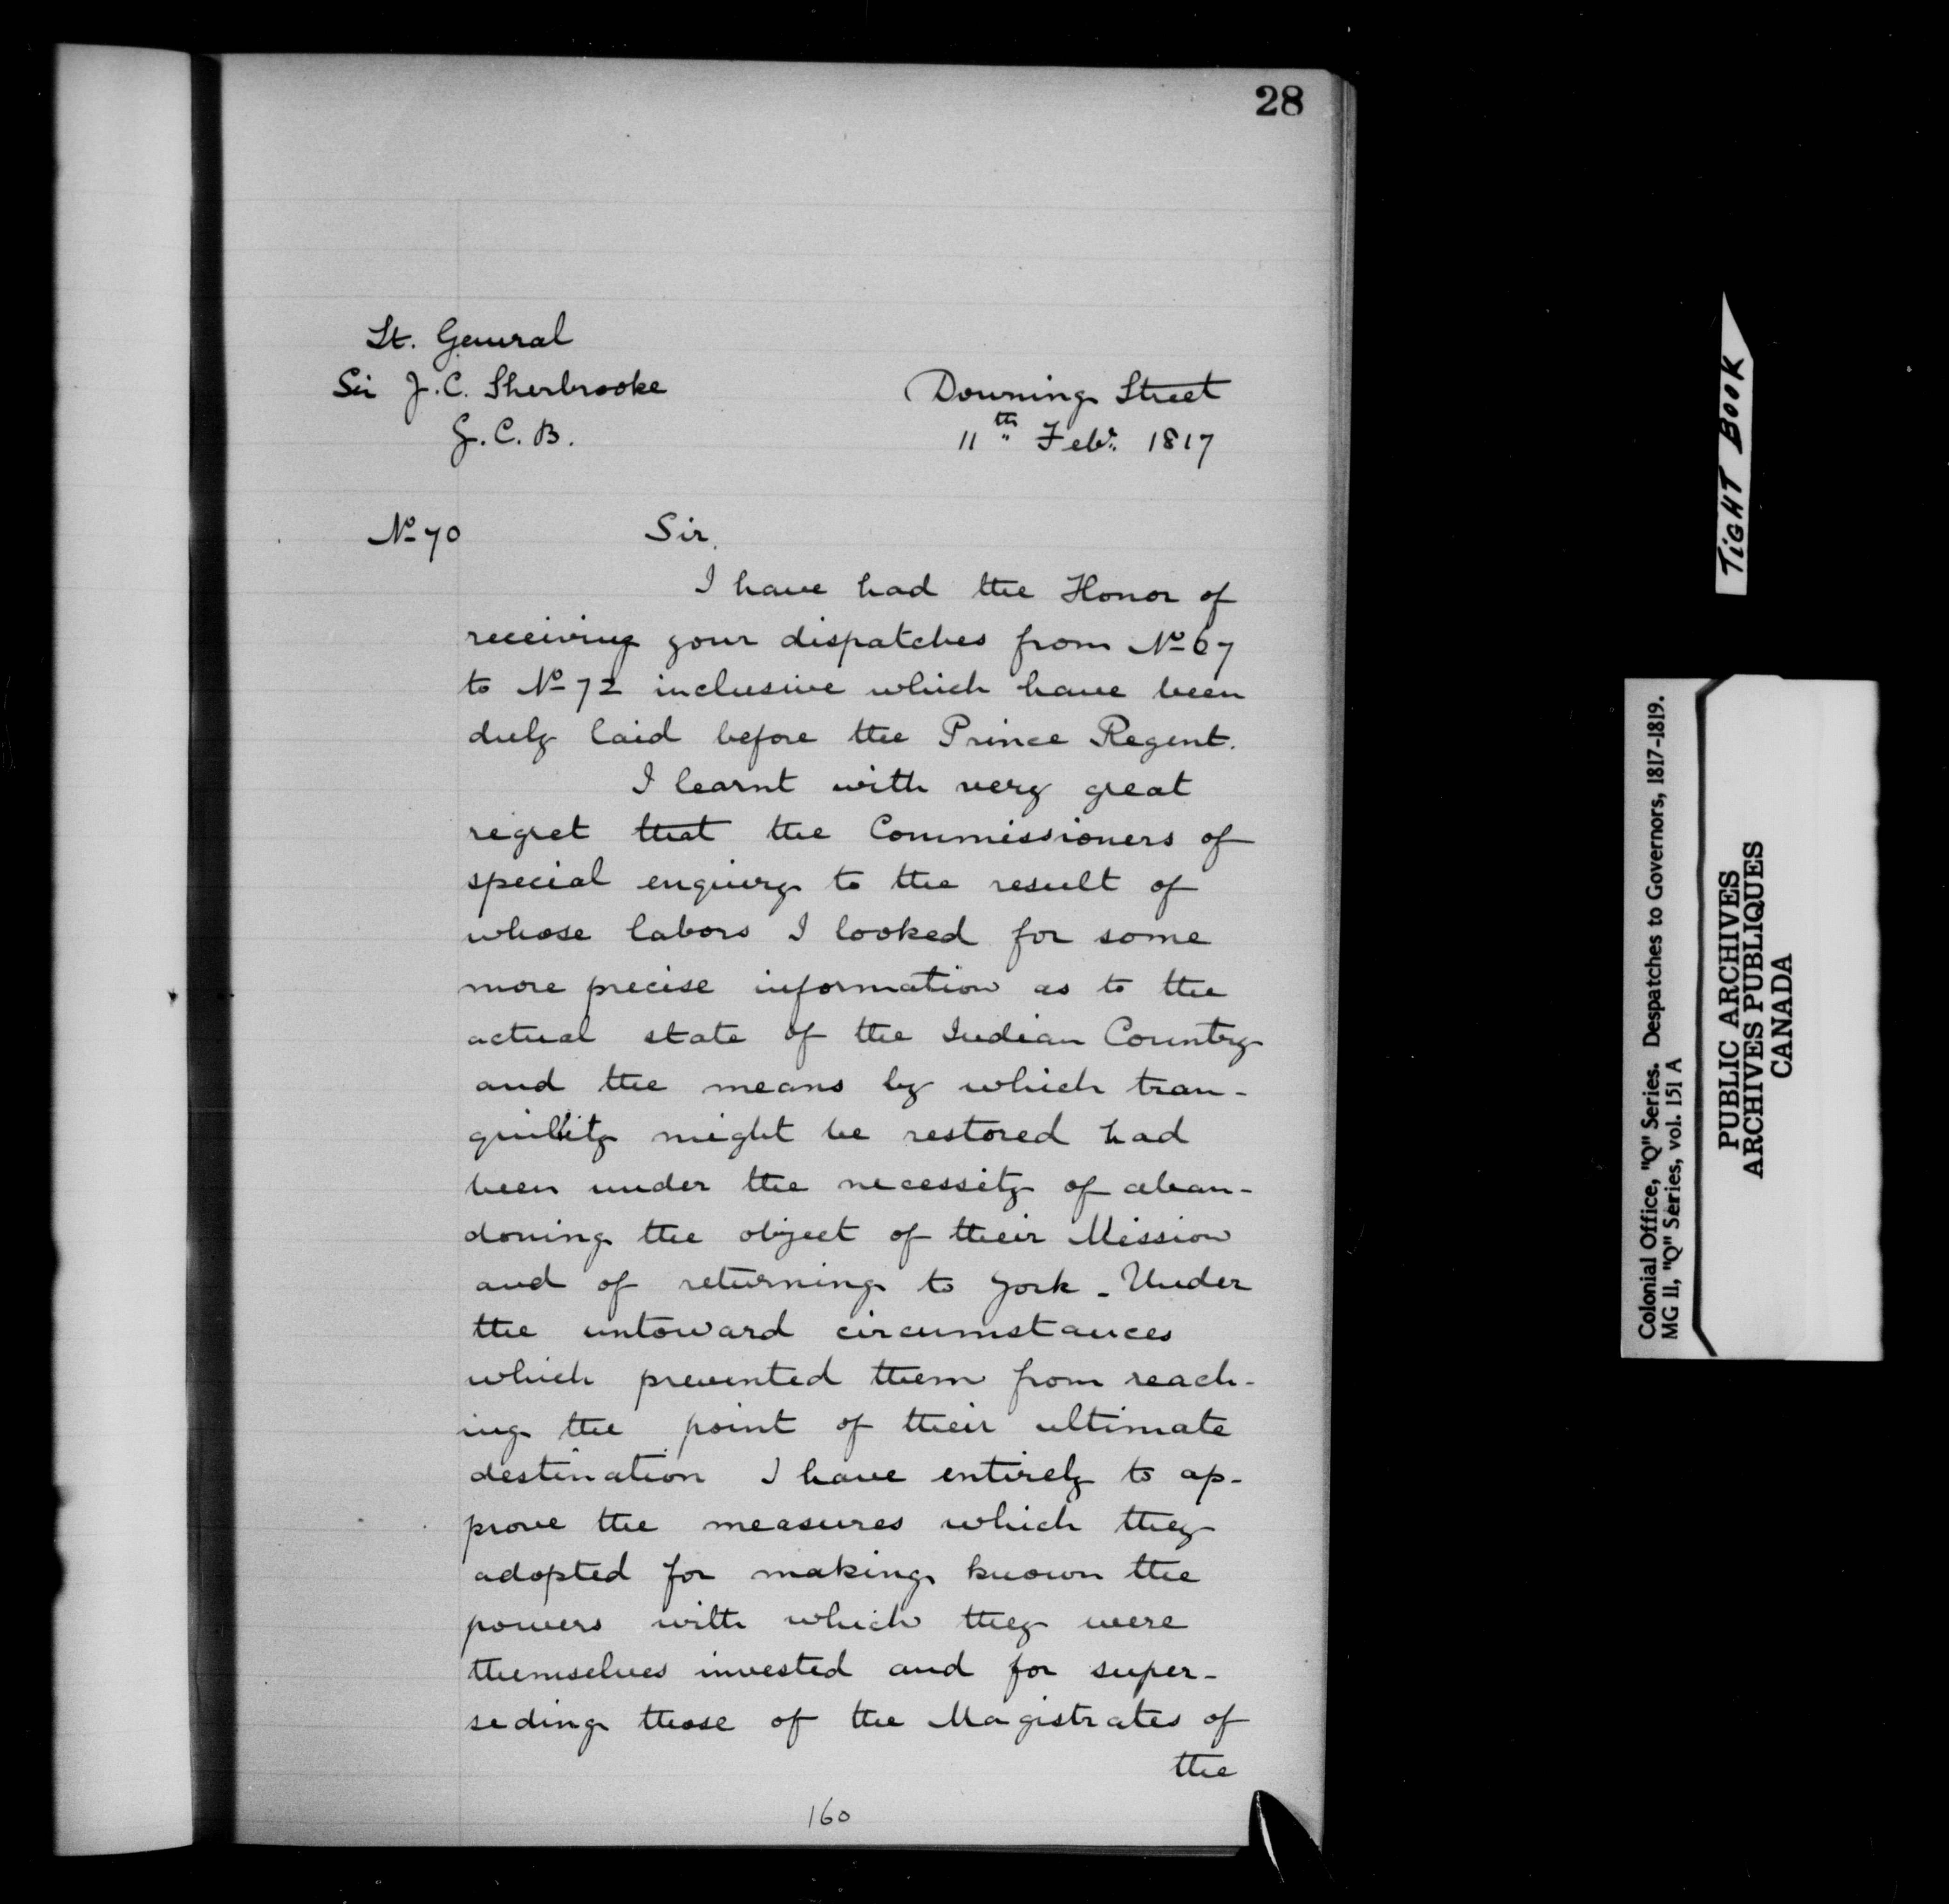 28
Lt. General
Sir J. C. Sherbrooke
G. C. B.
Downing Street
11th Feby. 1817
No 70
Sir,
I have had the Honor of
receiving your dispatches from No 67
to No 72 inclusive which have been
duly laid before the Prince Regent.
I learnt with very great
regret that the Commissioners of
special enquiry to the result of
whose labors I looked for some
more precise information as to the
actual state of the Indian Country
and the means by which tran-
quility might be restored had
been under the necessity of aban-
doning the object of their Mission
and of returning to York - Under
the untoward circumstances
which prevented them from reach-
ing the point of their ultimate
destination I have entirely to ap-
prove the measures which they
adopted for making known the
powers with which they were
themselves invested and for super-
seding those of the Magistrates of
the
160
TIGHT BOOK
Colonial Office, "Q" Series. Despatches to Governors, 1817-1819.
MG 11, "Q" Series, vol. 151 A
PUBLIC ARCHIVES
ARCHIVES PUBLIQUES
CANADA